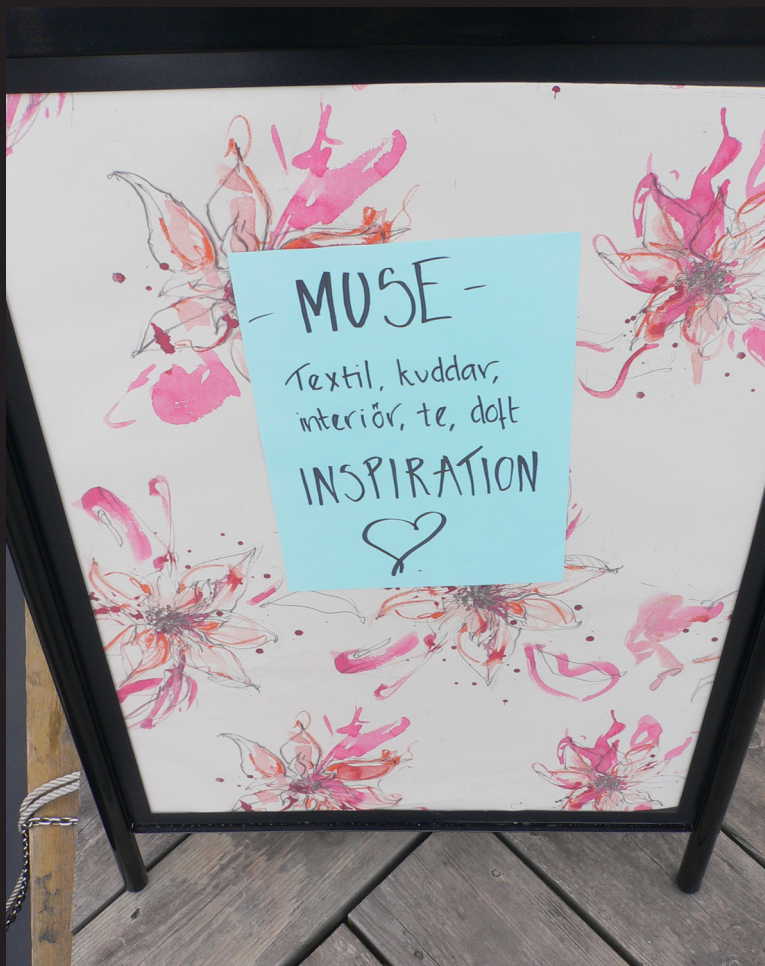 - MUSE -
Textil, kuddar,
interiör, te, doft
INSPIRATION